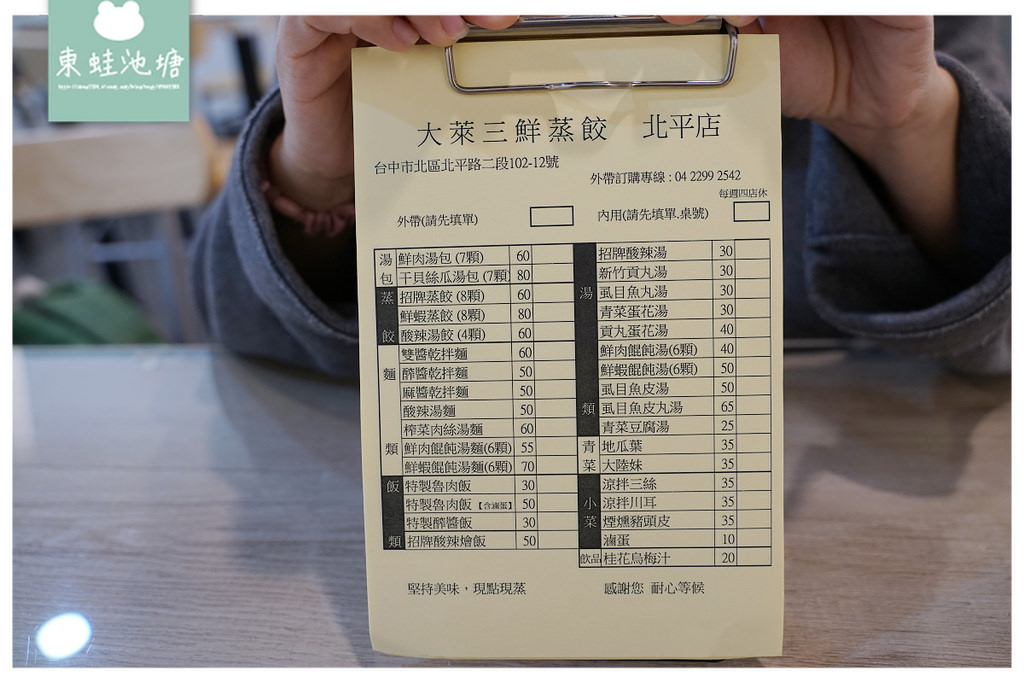 東蛙池塘
大萊三鮮蒸餃 北平店
台中市北區北平路二段102-12號
外帶訂購專線 : 04 2299 2542
每週四店休
外帶(請先填單)
內用(請先填單.桌號)
湯包
鮮肉湯包 (7顆) 60
干貝絲瓜湯包 (7顆) 80
蒸餃
招牌蒸餃 (8顆) 60
鮮蝦蒸餃 (8顆) 80
酸辣湯餃 (4顆) 60
麵類
雙醬乾拌麵 60
醡醬乾拌麵 50
麻醬乾拌麵 50
酸辣湯麵 50
榨菜肉絲湯麵 60
鮮肉餛飩湯麵(6顆) 55
鮮蝦餛飩湯麵(6顆) 70
飯類
特製魯肉飯 30
特製魯肉飯【含滷蛋】 50
特製醡醬飯 30
招牌酸辣燴飯 50
湯類
招牌酸辣湯 30
新竹貢丸湯 30
虱目魚丸湯 30
青菜蛋花湯 30
貢丸蛋花湯 40
鮮肉餛飩湯(6顆) 40
鮮蝦餛飩湯(6顆) 50
虱目魚皮湯 50
虱目魚皮丸湯 65
青菜豆腐湯 25
青菜
地瓜葉 35
大陸妹 35
小菜
涼拌三絲 35
涼拌川耳 35
煙燻豬頭皮 35
滷蛋 10
飲品
桂花烏梅汁 20
堅持美味，現點現蒸
感謝您 耐心等候